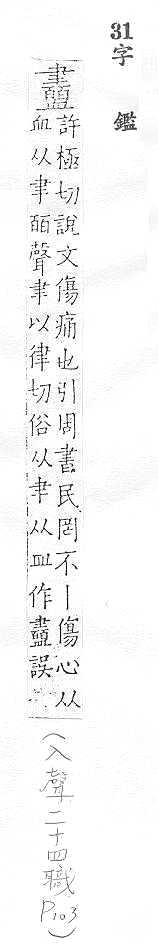 31字鑑
衋
許極切說文傷痛也引周書民罔不丨傷心从
血从聿皕聲聿以律切俗从聿从皿作誤
(入聲二十四職P103)